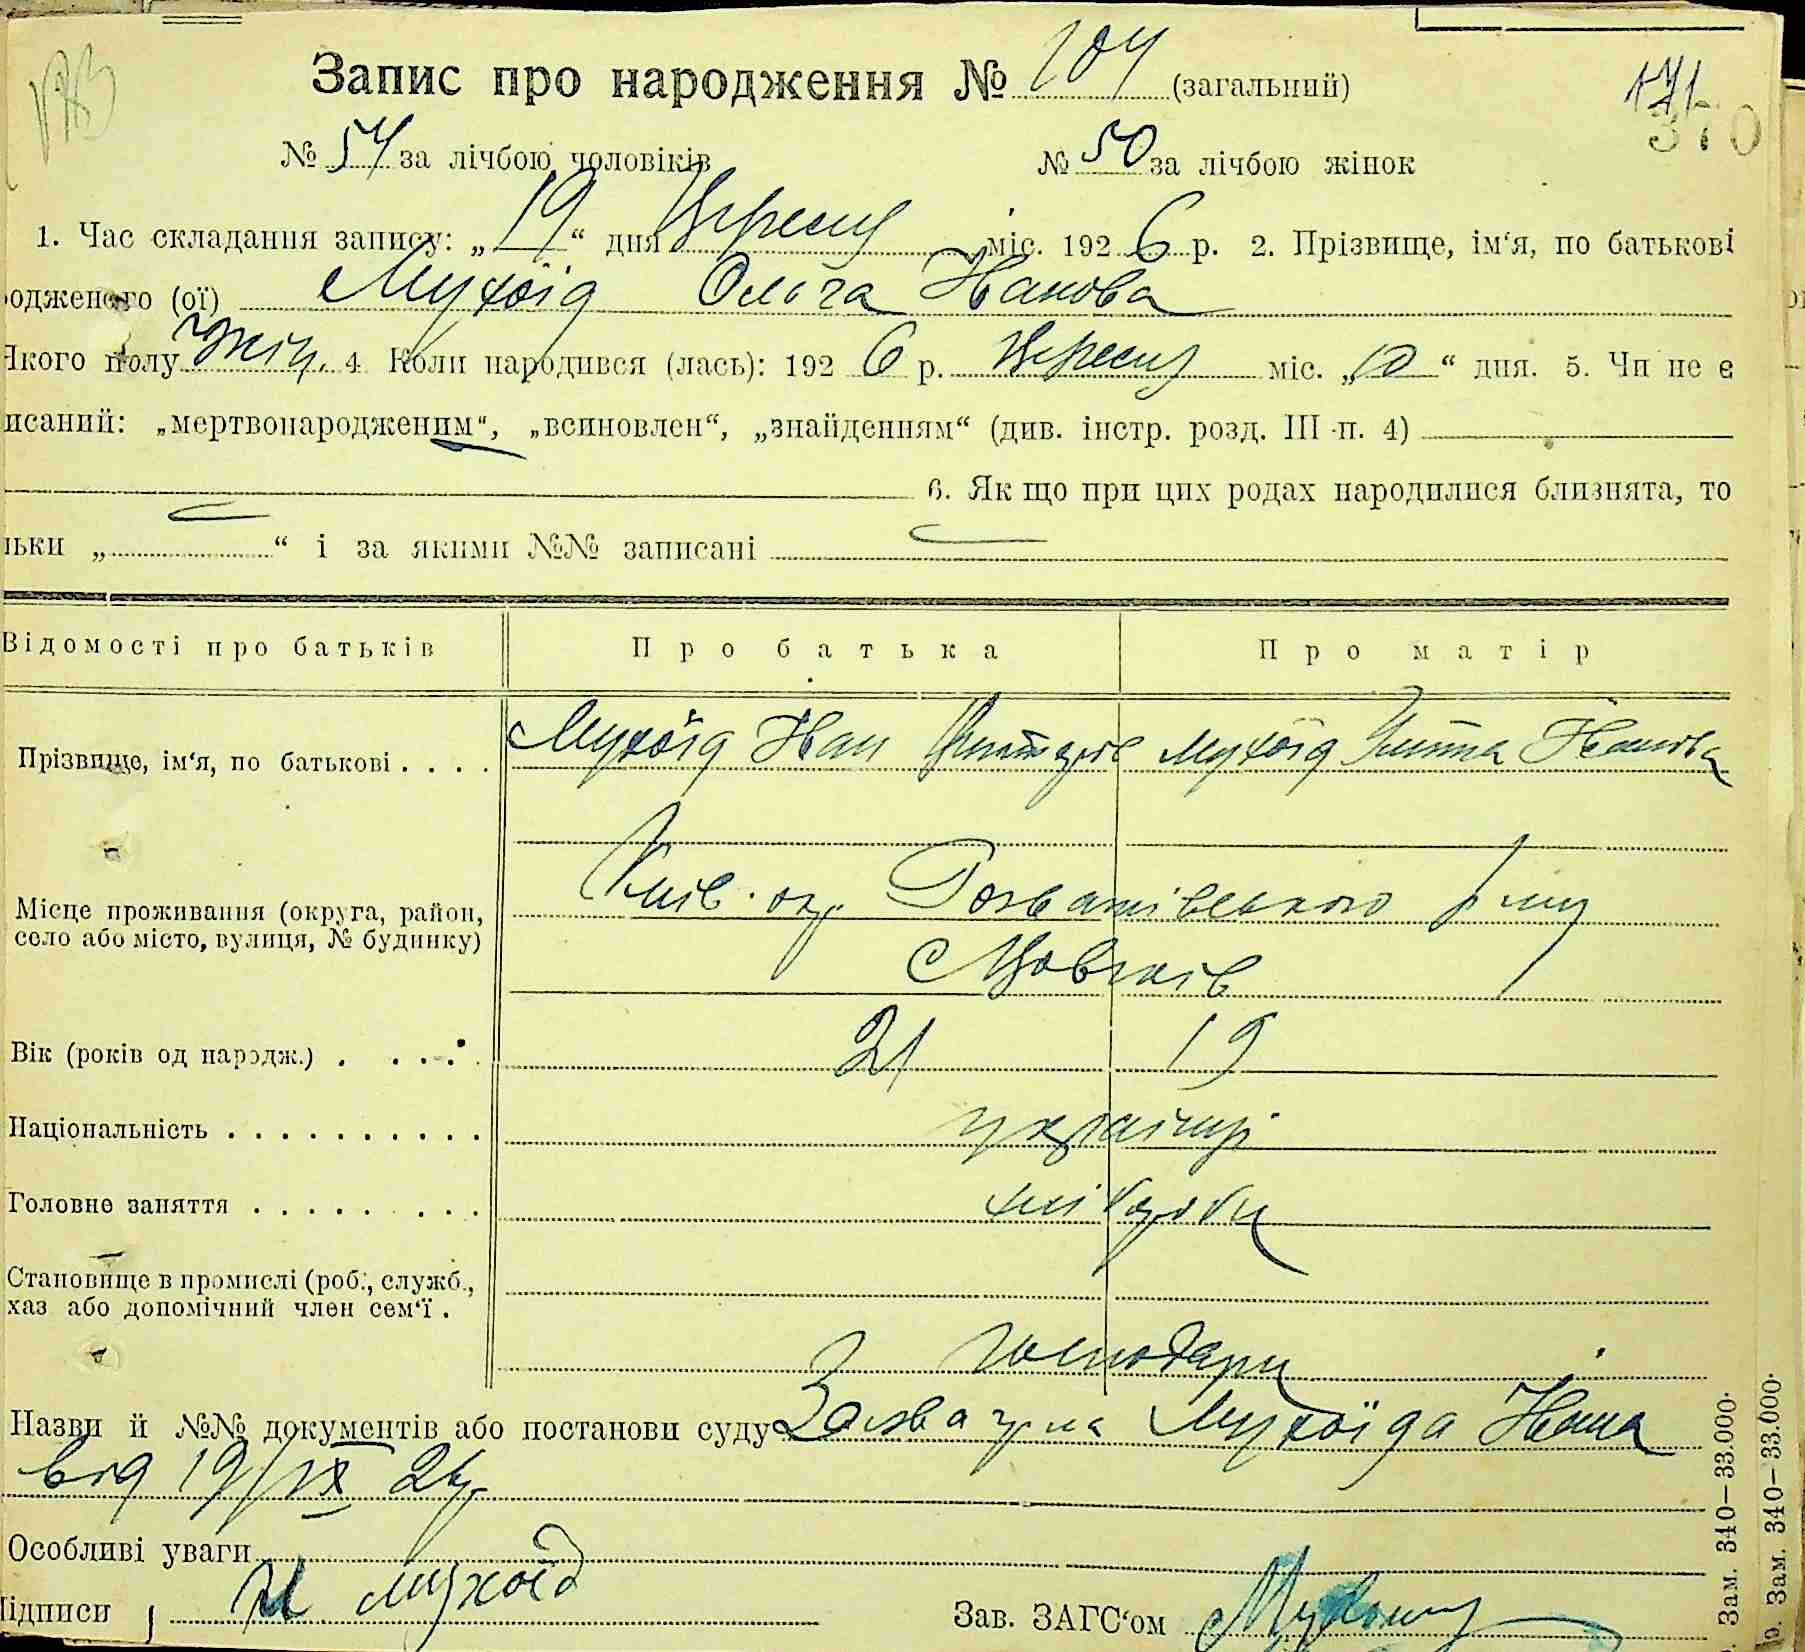 Запис про народження № 104 (загальний)
171
370
№ 54 за лічбою чоловіків № 50 за лічбою жінок
1. Час складання запису: „ 19 “ дня Вересня міс. 192 6 р. 2. Прізвище, ім‘я, по батькові
родженого (ої) Мухоїд Ольга Іванова
Якого полу жін. 4. Коли народився (лась): 192 6 р. Вересня міс. „ 10 “ дня. 5. Чи не є
исаний: „мертвонародженим“, „всиновлен“, „знайденням“ (див. інстр. розд. III п. 4)
6. Як що при цих родах народилися близнята, то
льки „ “ і за якими №№ записані
Відомості про батьків Про батька Про матір
Прізвище, ім‘я, по батькові . . . . Мухоїд Іван Мухоїд Іванова
Місце проживання (округа, район, село або місто, вулиця, № будинку) Київ. окр. Розважівського р-ну
с
Вік (років од народж.) . . . . 21 19
Національність . . . . . . . . . . українці
Головне заняття . . . . . . . . хлібороби
Становище в промислі (роб., служб., хаз або допомічний член сем‘ї .
господарі
Назви й №№ документів або постанови суду Заява гр-на Мухоїда Івана
від 19/IX 26 р.
Особливі уваги
Підписи И Мухоїд Зав. ЗАГС‘ом
Зам. 340—33.000.
р. Зам. 340—33.000.